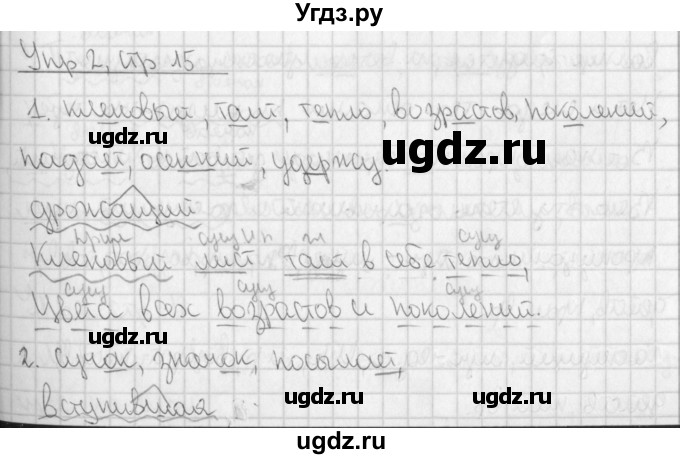 Угдз.ру
Упр 2, стр 15
1. Кленовый, таит, тепло, возрастов, поколений,
ugdz.ru ugdz.ru
падает, осенний, удержу.
ugdz.ru
дрожащий
прил сущ и.п. гл сущ
Кленовый лист таит в себе тепло,
сущ сущ сущ
Цвета всех возрастов и поколений.
ugdz.ru ugdz.ru
2. Сучок, значок, посылает,
ugdz.ru ugdz.ru
вступившая
ugdz.ru